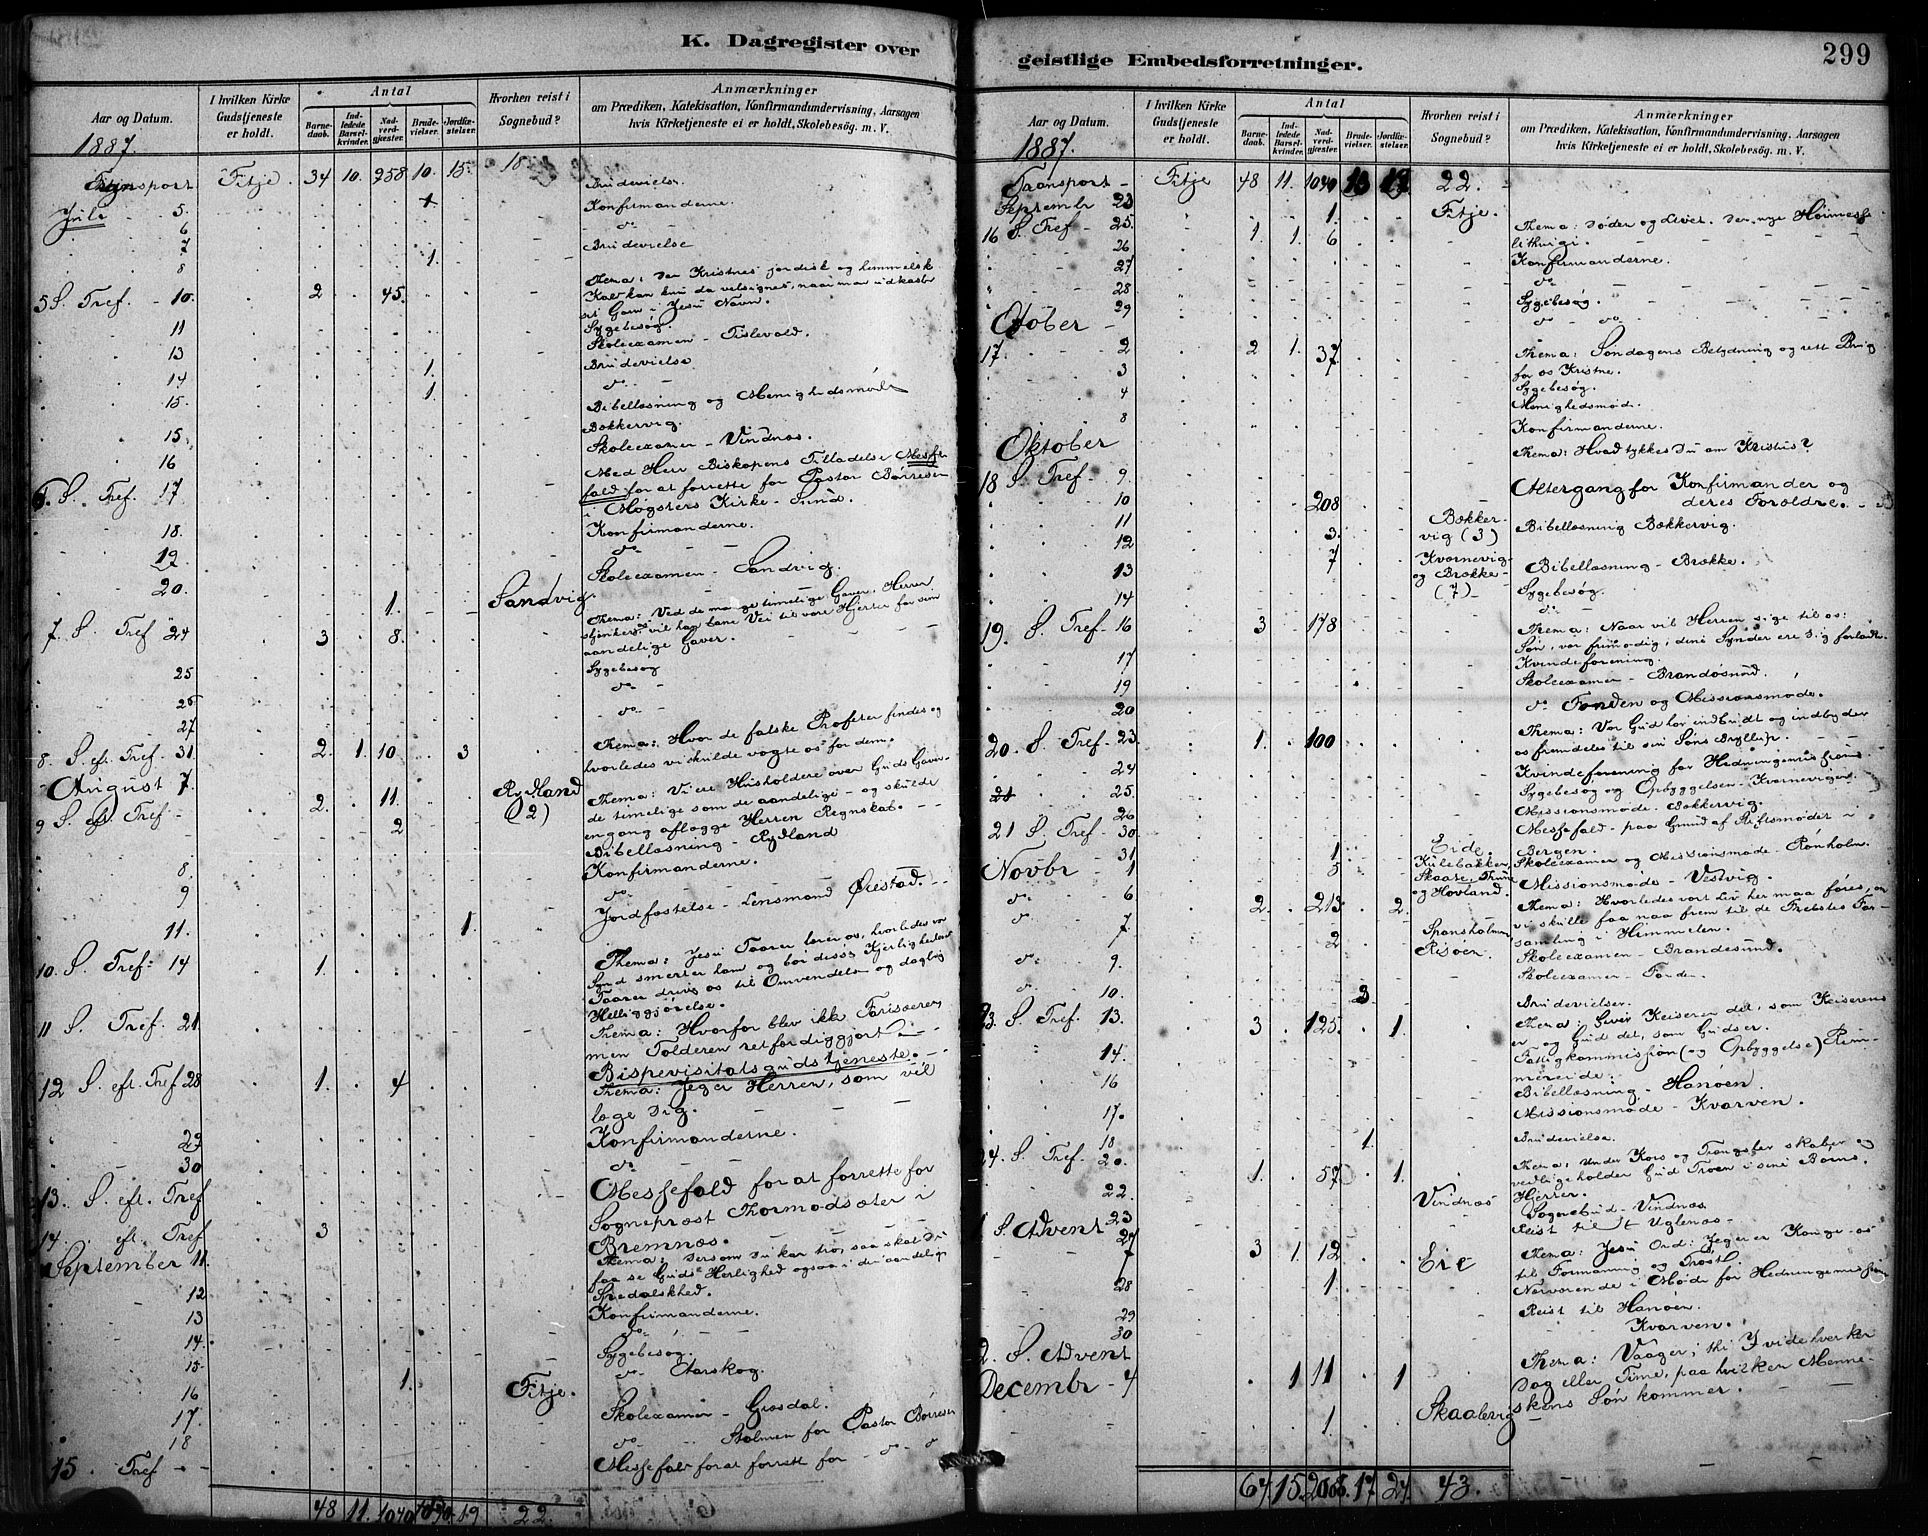 K. Dagregister over
Aar og Datum.
I hvilken Kirke
Gudstjeneste
er holdt.
Antal
Barne-
daab.
Ind-
ledede
Barsel-
kvinder.
Nad-
verd-
gjæster.
Brude-
vielser.
Jordfæ-
stelser.
Hvorhen reist i
Sognebud?
Anmærkninger
om Prædiken, Katekisation, Konfirmandundervisning, Aarsagen
hvis Kirketjeneste ei er holdt, Skolebesøg. m. V.
1887.
Transport Fitje. 34 10. 958 10. 15. Brudevielse
Jule 5. 1 Konfirmanderne.
6 do
7 1. Brudevielse
8 Thema: Den Kristnes jordisk og himmelsk
5 S. Tref. - 10. 2 45. Kald kan kun da velsignes, naar man udkaster
sit Garn i Jesu Navn.
11 Sygebesøg.
Skoleexamen - Tislevold.
13 1. Brudevielse
14 1. do
15. Bibellæsning og Menighedsmøde
Bækkervig.
15. Skoleexamen - Vindnæs.
16 Med Herr Biskopens Tilladelse Messe-
6. S. Tref. 17 fald for at forrette for Pastor Børresen
i Møgsters Kirke - Sund.
18. Konfirmanderne.
19. do
20. 1. Sandvig. Skoleexamen - Sandvig.
7. S. Tref 24 3 8. Thema: Ved de mange timelige Gaver, Herren
skjenker os vil han bane Vei til vore Hjerter for sine
aandelige Gaver.
25 Sygebesøg
26 do
27 do
8. S. eft. Tref. 31 2. 1. 10 3 Thema: Hvor de falske Profeter findes og
hvorledes vi skulde vogte os for dem.
August 7. Rydland Thema: Vi ere Husholdere over Guds Gaver-
9 S. eft Tref - 2. 11. (2) de timelige som de aandelige - og skulde
2 engang aflægge Herren Regnskab.
Bibellæsning - Rydland
8. Konfirmanderne.
9 do
11. 1. Jordfæstelse - Lensmand Øiestad.
10. S. Tref: 14 1. Thema: Jesu Taarer lærer os, hvorledes vor
Synd smerter ham og bør disse Kjerlighedens
Taarer drive os til Omvendelse og daglig
Helliggjørelse.
11 S. Tref. 21 Thema: Hvorfor blev ikke Farisæeren
men Tolderen retfærdiggjort
Bispevisitatsgudstjeneste.
12 S. eft. Tref 28 1. 4 Thema: Jeg er Herren, som vil
læge Dig.
29 Konfirmanderne.
30 do
13. S. eft. Tref Messefald for at forrette for
Sognepræst Thormodsæter i
14. eft. Tref 3 Bremnæs.
September 11. Thema: Dersom Du kan tro, saa skal Du
faa se Guds Herlighed ogsaa i din aandelige
12 Spedalskhed.
13 Konfirmanderne.
14. do
15 Sygebesøg.
16 1. Fitje. do Aarskog.
17. Skoleexamen - Grosdal.
18 do Stolmen for Pastor Børresen
15. Tref Messefald for at forrett for do
48 11. 1040 19 22.
geistlige Embedsforretninger.
299
Aar og Datum.
I hvilken Kirke
Gudstjeneste
er holdt.
Antal
Barne-
daab.
Ind-
ledede
Barsel-
kvinder.
Nad-
verd-
gjæster.
Brude-
vielser.
Jordfæ-
stelser.
Hvorhen reist i
Sognebud?
Anmærkninger
om Prædiken, Katekisation, Konfirmandundervisning, Aarsagen
hvis Kirketjeneste ei er holdt, Skolebesøg. m. V.
1887.
Transport - Fitje 48 11. 1040 13 19 22.
Septembr 23 1. Fitje.
16 S. Tref - 25. 1. 1. 6 Thema: Døden og Livet. Den nye Høimesse
lithurgi.
26 Konfirmanderne.
27 do
28 Sygebesøg.
29 do do
Oktober
17. 2 2 1. 37 Thema: Søndagens Betydning og rett Brug
for os Kristne.
3 Sygebesøg.
4 Menighedsmøde.
8 Konfirmanderne.
Oktober
18 S. Tref - 9. Thema: Hvad tykkes Du om Kristus?
10 208 Altergang for Konfirmander og
deres Forældre.
11 3. Bækker-
vig (3) Bibellæsning Bækkervig.
12 7 Kvornevig
og Brække-
(7)
13 Bibellæsning - Brække.
14 Sygebesøg.
do
19. S. Tref - 16 3 178 Thema: Naar vil Herren sige til os:
Søn, vær frimodig, dine Synder ere Dig forladte.
17 Kvindeforening.
19 Skoleexamen - Brandøsund.
20 do Fonden og Missionsmøde.
20. S. Tref - 23. 1. 100 Thema: Vor Gud har indbudt og indbyder
os fremdeles til sin Søns Bryllup.
24 Kvindeforening for Hedningemissionen
25. Sygebesøg og Opbyggelsen - Kvornevigen.
26 Missionsmøde - Bækkervig.
21 S. Tref - 30 Messefald - paa Grund af Stiftsmødet i
Bergen.
31 1 Eide. Skoleexamen og Missionsmøde - Rønholm.
Novbr 1 5 Kulebakken
Skaate, Thune
og Hovland. Missionsmøde - Vestvig.
do 6 2. 213 2. Thema: Hvorledes vort Liv her maa føres, om
vi skulle faa naa frem til de Frelstes For-
samling i Himmelen.
do 7. 2 Spansholmen
Risøen. Skoleexamen - Brandesund.
do 9. Skoleexamen - Fonden.
do 10. 3 Brudevielser.
23. S. Tref. 13. 3 125. 1. Thema: Giver Keiseren det, som Keiserens
er og Gud det, som Guds er.
14. Fattigkommission (og Opbyggelse) Rim-
mereide.
16 Bibellæsning - Hanøen.
17. Missionsmøde - Kvarven.
18 1. Brudevielse.
24. S. Tref. 20. 1. 57 1. Thema: Under Kors og Trængsler skaber og
vedligeholder Gud Troen i sine Børns
Hjerter.
22. Vindnæs Sognebud - Vindnæs
23 Reist til Uglenæs -
1 S. Advent 27 3 1. 12 Eie Thema: Jesu Ord: Jeg er en Konge - os
til Formaning og Trøst.
28 1. Nærværende i Møde for Hedningemissionen
29 Reist til Hanøen.
30 Kvarven.
2. S. Advent
Decembr - 4 1 11 1 Thema: Vaager, thi I vide hverken
Dag eller Time, paa hvilken Menne-
skens Søn kommer.
1 Skaalevig
67. 15. 2008. 17. 24. 43.